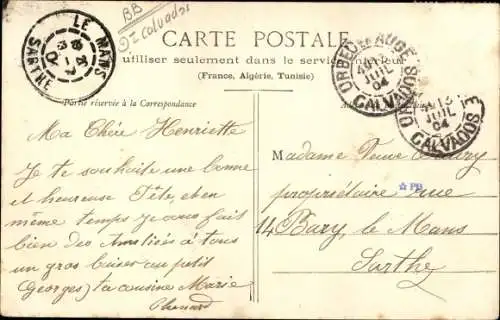 BB
Calvados
LE MANS
SARTHE
CARTE POSTALE
utiliser seulement dans le service intérieur
(France, Algérie, Tunisie)
Partie réservée à la Correspondance
ORBEC EN AUGE
JUIL
04
CALVADOS
13
JUIL
04
CALVADOS
Ma Chère Henriette
Je te souhaite une bonne
et heureuse Fête, et en
même temps je vous fais
bien des Amitiés à tous
un gros baiser au petit
Georges) ta cousine Marie
Madame Veuve
propriétaire rue
☆ PB
14 Bary, le Mans
Sarthe